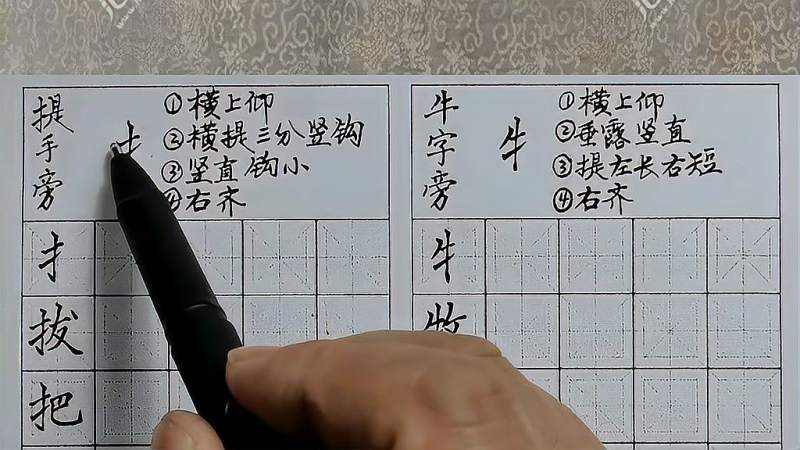 提手旁
扌
①横上仰
②横提三分竖钩
③竖直钩小
④右齐
扌
拔
把
牛字旁
牜
①横上仰
②垂露竖直
③提左长右短
④右齐
牜
牧